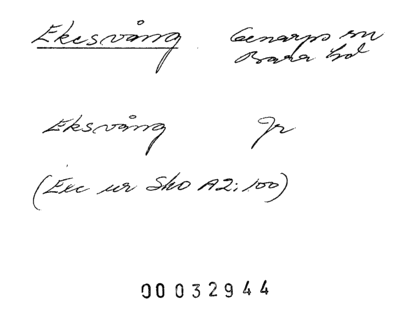 Ekesvång Genarps sn
Bara hd
Eksvång Jr
(Exc ur Sko A2:100)
00032944